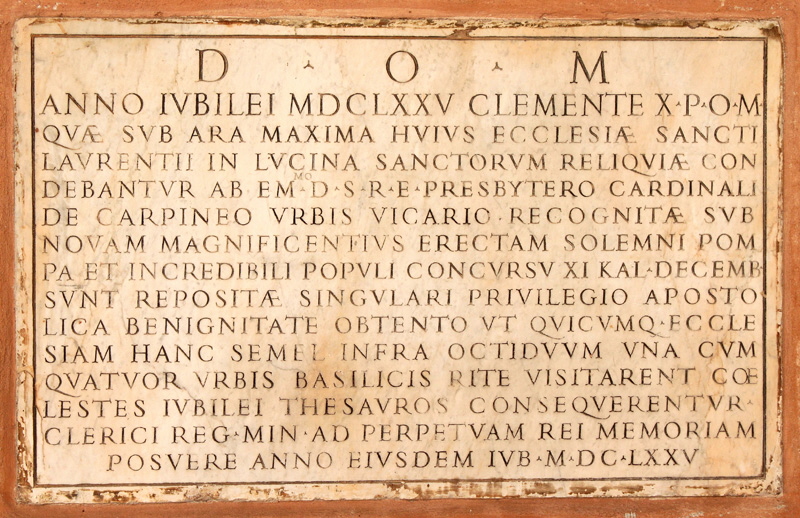 D · O · M
ANNO IVBILEI MDCLXXV CLEMENTE X·P·O·M·
QVÆ SVB ARA MAXIMA HVIVS ECCLESIÆ SANCTI
LAVRENTII IN LVCINA SANCTORVM RELIQVIÆ CON
DEBANTVR AB EM^MO·D·S·R·E·PRESBYTERO CARDINALI
DE CARPINEO VRBIS VICARIO·RECOGNITÆ SVB
NOVAM MAGNIFICENTIVS ERECTAM SOLEMNI POM
PA ET INCREDIBILI POPVLI CONCVRSV XI KAL·DECEMB
SVNT REPOSITÆ SINGVLARI PRIVILEGIO APOSTO
LICA BENIGNITATE OBTENTO VT QVICVMQ·ECCLE
SIAM HANC SEMEL INFRA OCTIDVVM VNA CVM
QVATVOR VRBIS BASILICIS RITE VISITARENT CŒ
LESTES IVBILEI THESAVROS CONSEQVERENTVR·
CLERICI REG·MIN·AD PERPETVAM REI MEMORIAM
POSVERE ANNO EIVSDEM IVB·M·DC·LXXV